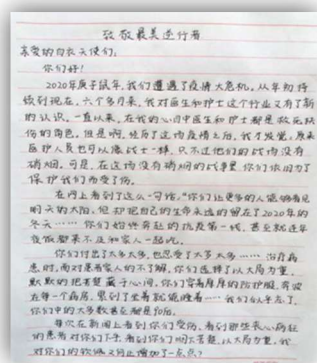 致敬最美逆行者
亲爱的白衣天使们：
你们好！
2020年庚子鼠年，我们遭遇了疫情大危机。从年初持
续到现在，六个多月来，我对医生和护士这个行业又有了新
的认识。一直以来，在我的心目中医生和护士都是救死扶
伤的角色。但是啊，经历了这场疫情之后，我才发觉，原来
医护人员也可以像战士一样，只不过他们的战场没有
硝烟。可是，在这场没有硝烟的战争里，你们依旧为了
保护我们而受了伤。
在网上看到了这么一句话，“你们让更多的人能够看见
明天的太阳，但却把自己的生命永远的留在了2020年的
冬天……你们始终奔赴的抗疫第一线，甚至就连年
夜饭都来不及和家人一起吃。
你们付出了太多太多，也忍受了太多太多……治疗病
患时，面对患者家人的不了解，你们选择了以大局为重，
默默的把苦楚藏于心间，你们穿着厚厚的防护服，奔波
在每一个病房，累到了坐着就能睡着……我们似乎忘了，
你们中的大多数甚至都是90后。
每次在新闻上看到你们受伤，看到那些丧心病狂
的患者对你们下手，看到你们
对你们的敬佩又何止增加了一点点？